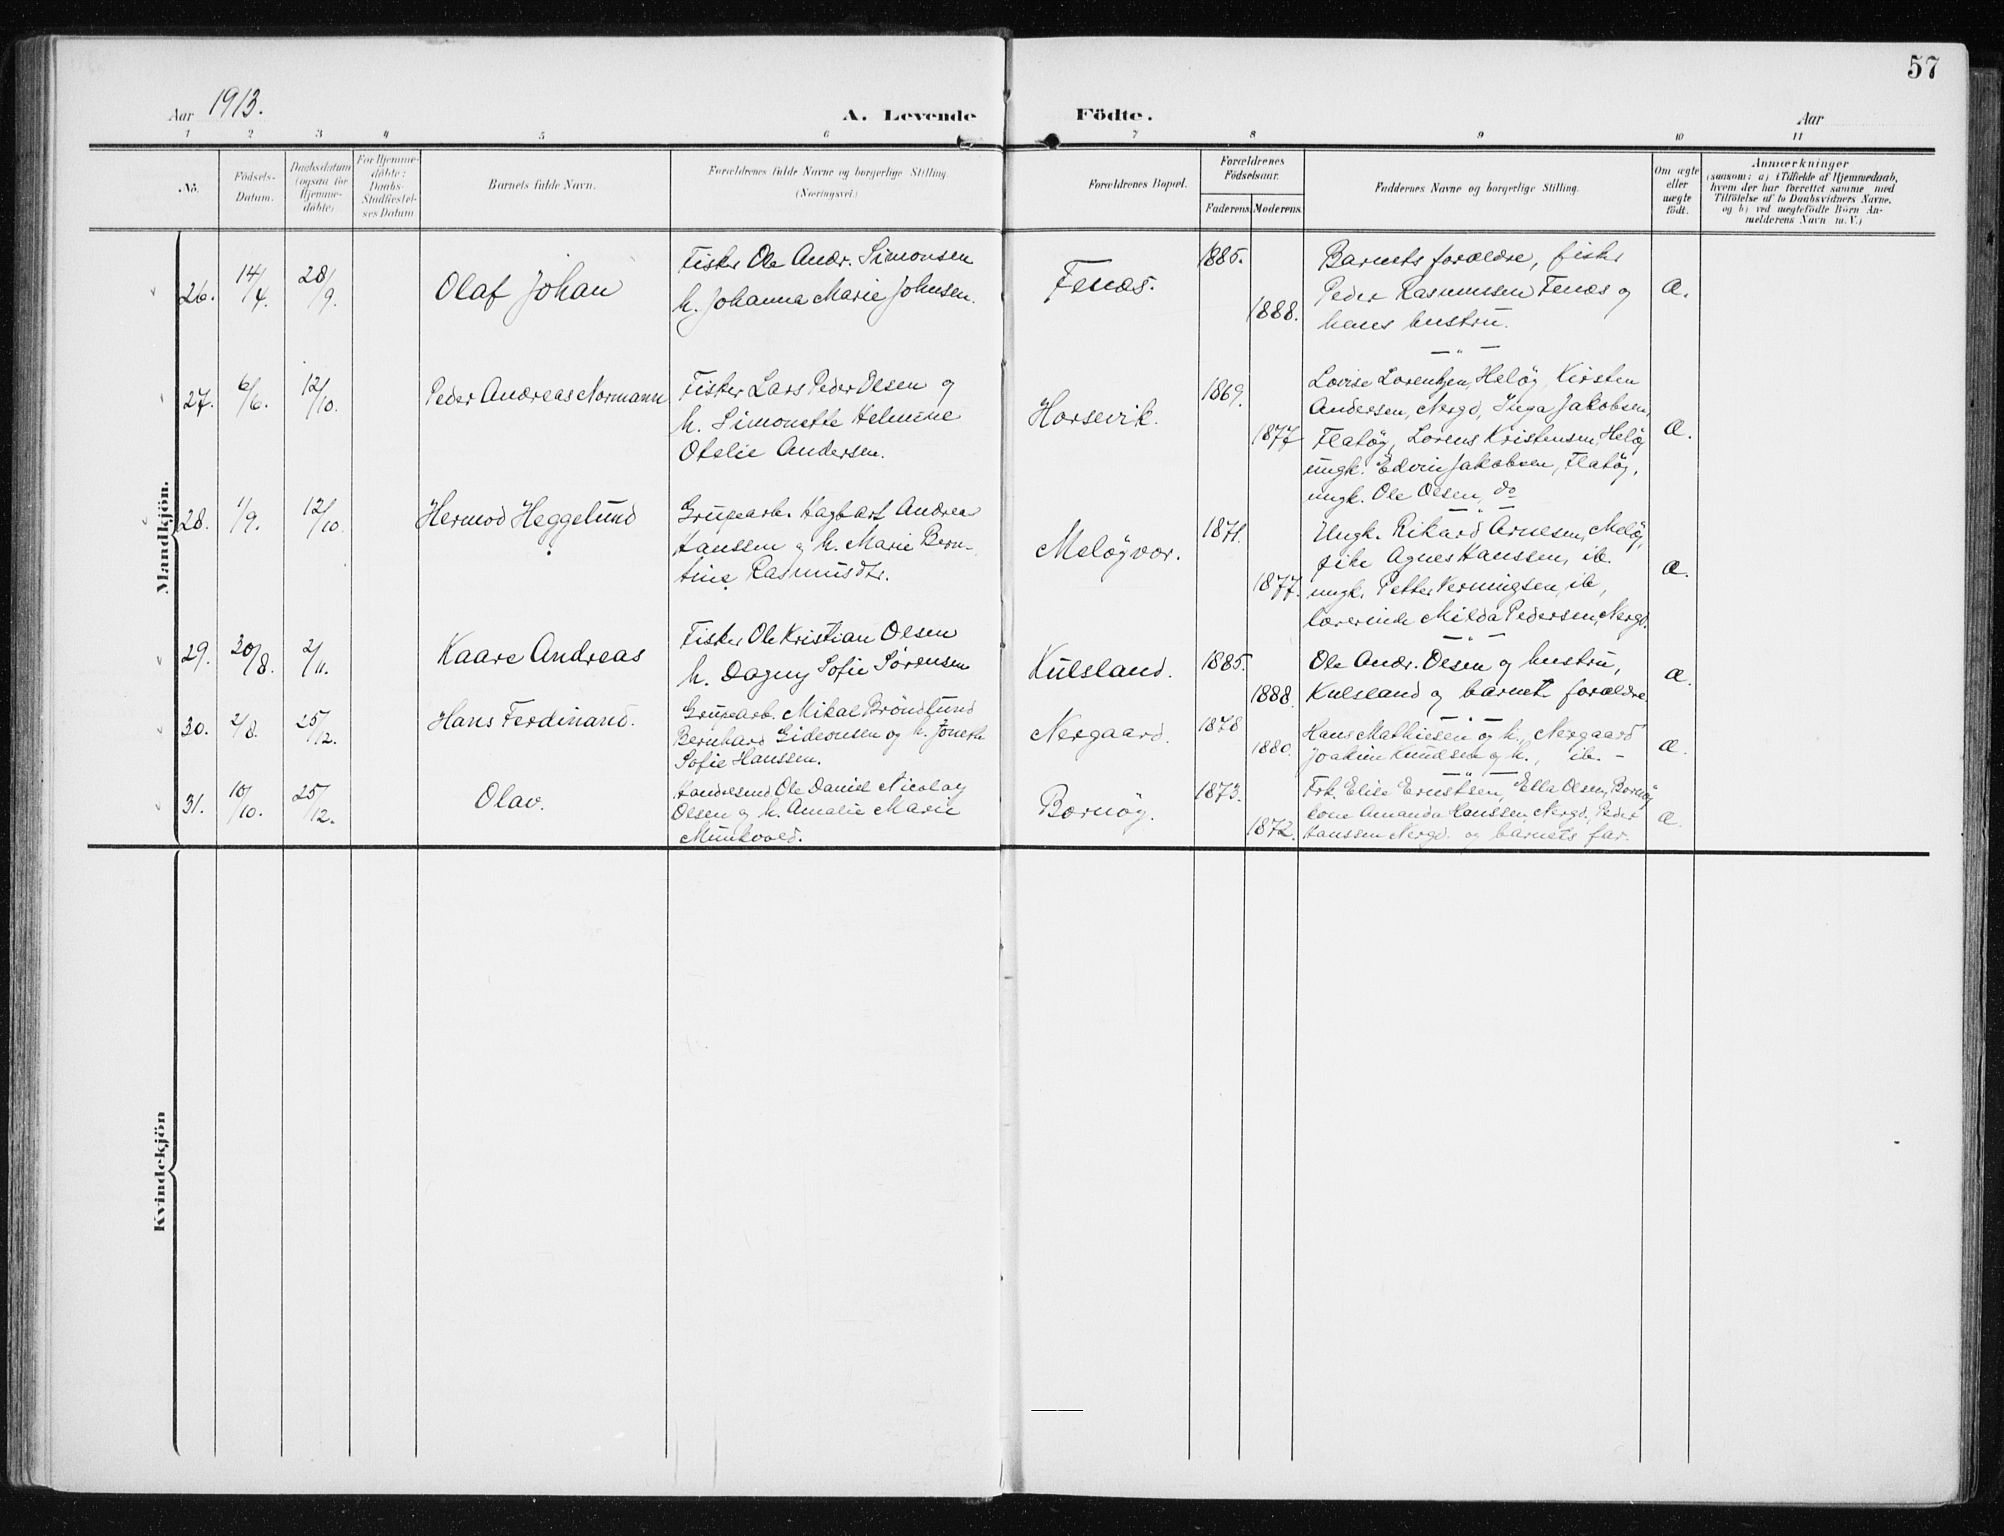 57
Aar 1913.
A. Levende Födte.
Aar
1 2 3 4 5 6 7 8 9 10 11
No.
Födsels-
Datum.
Daabsdatum
(ogsaa for
Hjemme-
döbte)
For Hjemme-
döbte:
Daabs-
Stadfæstel-
ses Datum
Barnets fulde Navn.
Forældrenes fulde Navne og borgerlige Stilling.
(Næringsvei.)
Forældrenes Bopæl.
Forældrenes
Födselsaar.
Faderens Moderens.
Faddernes Navne og borgerlige Stilling.
Om ægte
eller
uægte
födt.
Anmærkninger
(saasom: a) i Tilfælde af Hjemmedaab,
hvem der har forrettet samme med
Tilföielse af to Daabsvidners Navne.
og b) ved uægtefödte Börn An-
melderens Navn m. V.)
Mandkjön.
26. 14/4 28/9. Olaf Johan
Fisker Ole Andr. Simonsen
h. Johanna Marie Johnsen.
Fenæs.
1885.
1888.
Barnets forældre, fisker
Peder Rasmussen Fenæs og
hans hustru.
æ.
— " —
27. 6/6. 12/10. Peder Andreas Normann
Fisker Lars Peder Olsen og
h. Simonette Helmine
Otelie Andersen.
Horsevik.
1869.
1877
Lovise Lorentzen, Meløg, Kirsten
Andersen, Nergd, Inga Jakobsen,
Flatøg, Lorens Kristensen, Meløg
ungk. Edvin Jakobsen, Flatøg,
ungk. Ole Olsen, do
æ.
28. 1/9. 12/10 Hermod Heggelund
Grubearb. Hagbart Andreas
Hanssen og h. Marie Bern-
tine Rasmusdtr.
Meløgvær.
1871.
1877.
Ungk. Rikard Arnesen, Meløg,
pike Agnes Hanssen, ib.
ungk. Petter Kerningsen, ib,
lærerinde Milda Pedersen, Nergd.
æ.
— " —
29. 20/8. 2/11. Kaare Andreas
Fisker Ole Kristian Olsen
h. Dagny Sofie Sørensen
Kulsland.
1885.
1888.
Ole Andr. Olsen og hustru,
Kulsland og barnets forældre.
æ.
— " —
30. 2/8. 25/12. Hans Ferdinand.
Grubearb. Mikal Brøndlund
Bernhard Gideonsen og h.
Sofie Hanssen.
Nergaard.
1878
1880.
Hans Mathiesen og h., Nergaard
Joakim Knudsen og h., ib. -
æ.
31. 10/10. 25/12. Olav.
Handelsmd Ole Daniel Nicolay
Olsen og h. Amalie Marie
Munkvold.
Bornøg.
1873.
1872.
Frk. Elise Ernstsen, Ella Olsen, Bornøg
kone Amanda Hanssen, Nergd, Peder
Hanssen Nergd. og barnets far.
æ.
Kvindekjön